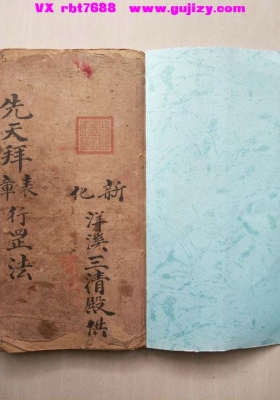 VX rbt7688  www.gujizy.com
先天拜表章行罡法
新化
洋溪三清殿供